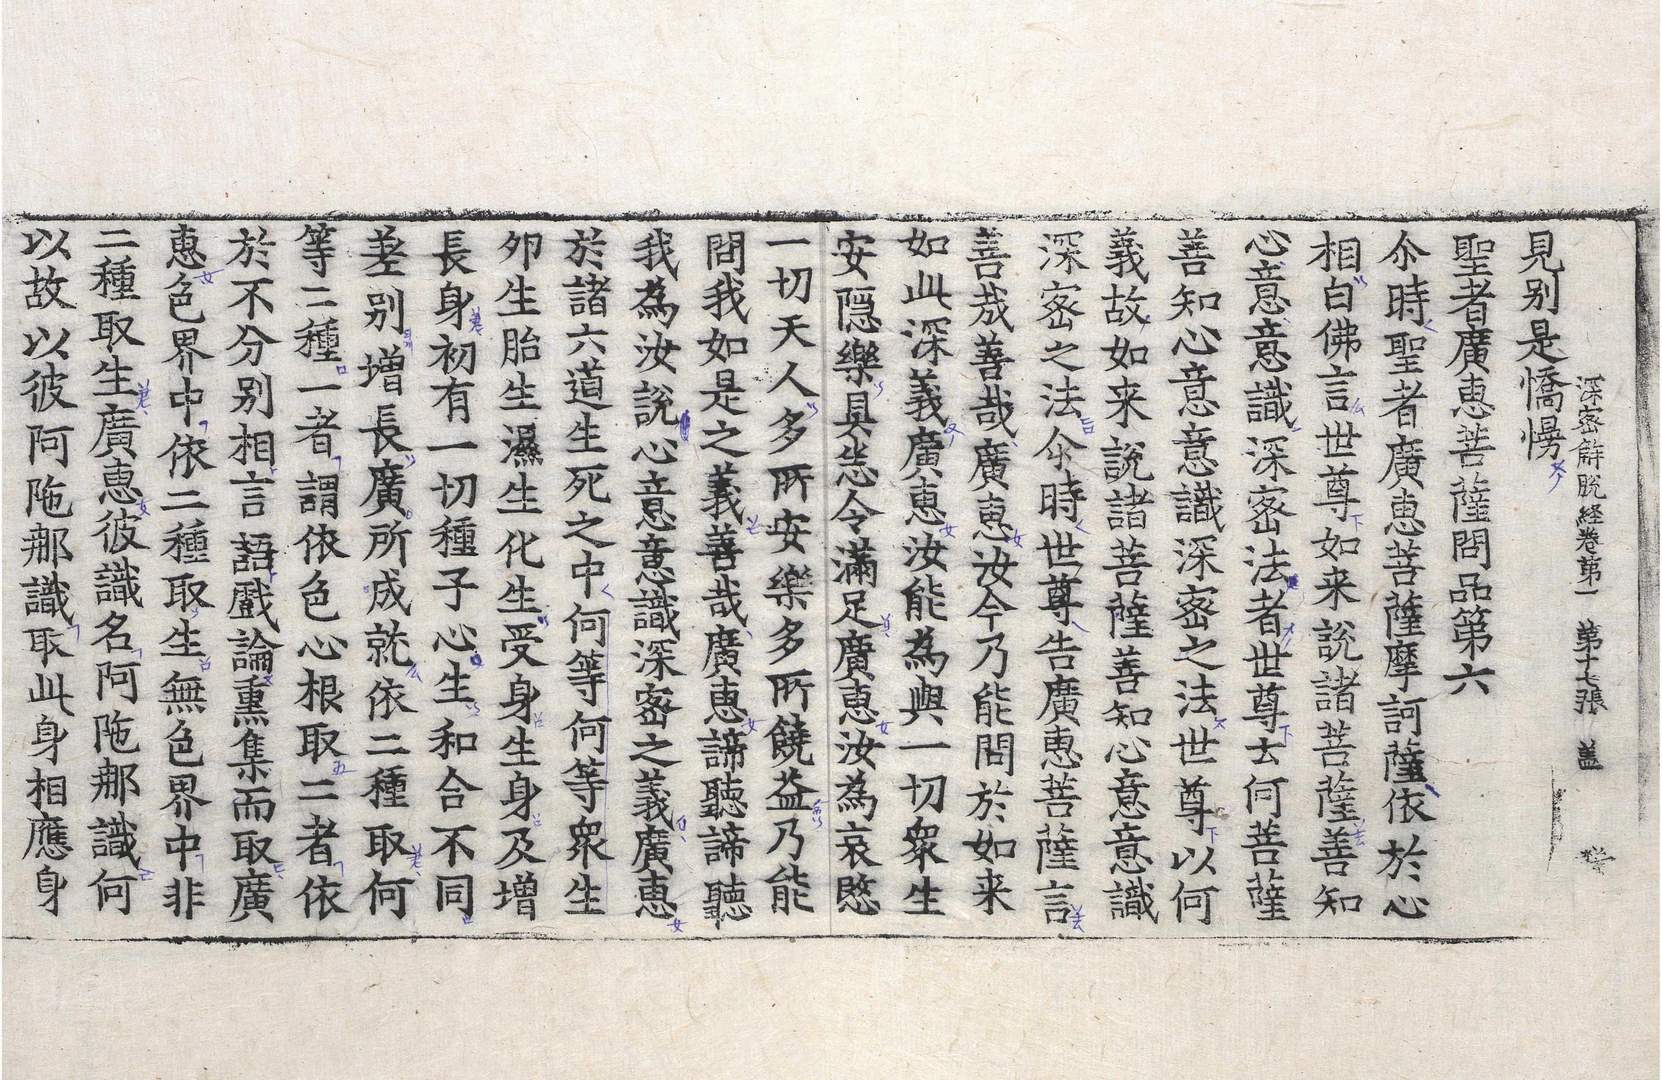 深密解脫経卷第一 第十七張 盖
見別是憍慢
聖者廣惠菩薩問品第六
尒時聖者廣惠菩薩摩訶薩依於心
相白佛言世尊如来說諸菩薩善知
心意意識深密法者世尊云何菩薩
善知心意意識深密之法世尊以何
義故如来說諸菩薩善知心意意識
深密之法尒時世尊告廣惠菩薩言
善哉善哉廣惠汝今乃能問於如来
如此深義廣惠汝能為與一切衆生
安隱樂具悉令滿足廣惠汝為哀愍
一切天人多所安樂多所饒益乃能
問我如是之義善哉廣惠諦聽諦聽
我為汝說心意意識深密之義廣惠
於諸六道生死之中何等何等衆生
卵生胎生濕生化生受身生身及增
長身初有一切種子心生和合不同
差別增長廣所成就依二種取何
等二種一者謂依色心根取二者依
於不分別相言語戲論熏集而取廣
惠色界中依二種取生無色界中非
二種取生廣惠彼識名阿陁那識何
以故以彼阿陁那識取此身相應身